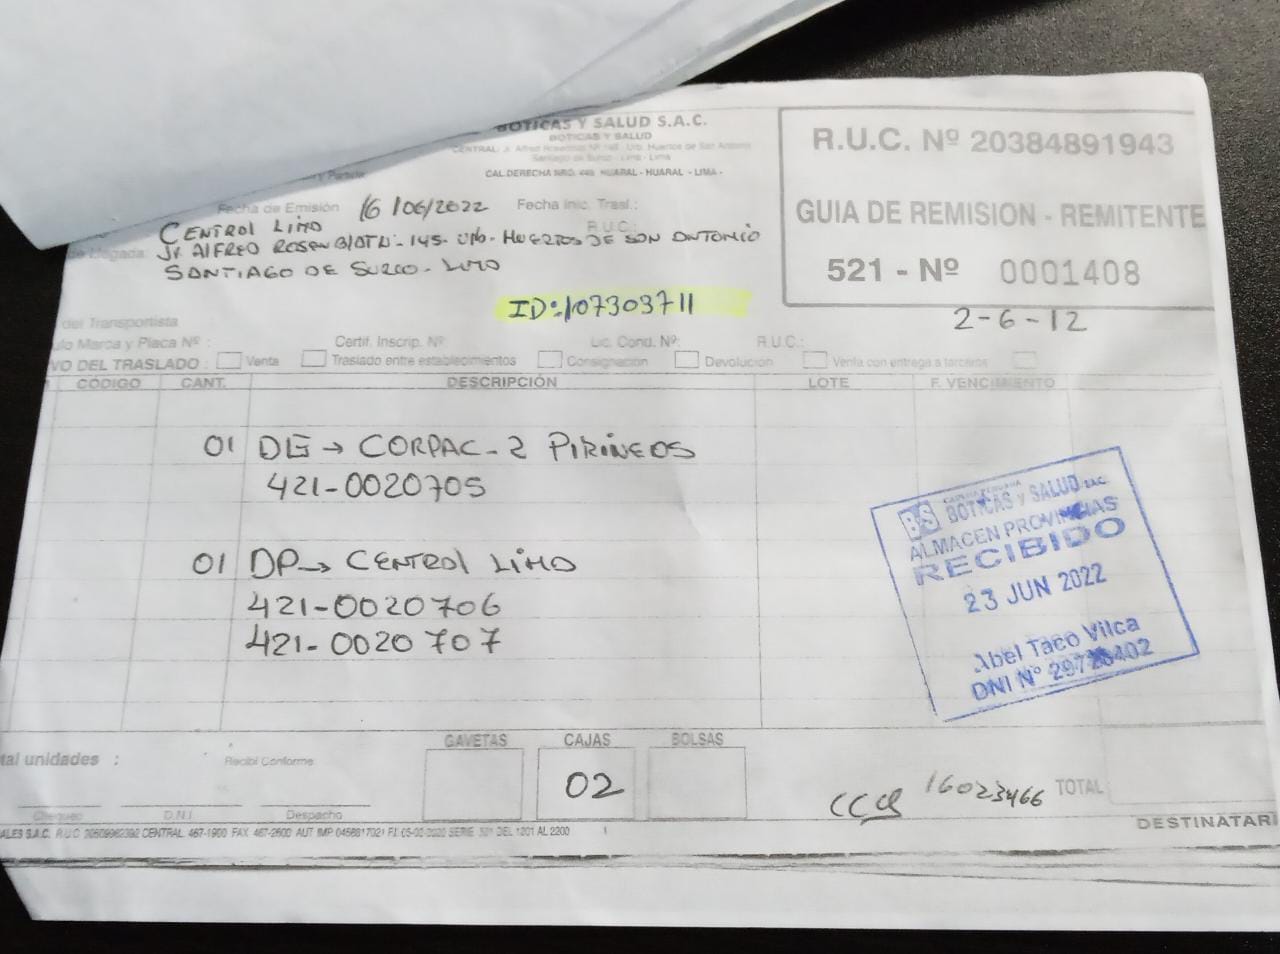 BOTICAS Y SALUD S.A.C.
BOTICAS Y SALUD
CENTRAL: Jr. Alfred Rosenblat Nº 145 Urb. Huertos de San Antonio
Santiago de Surco - Lima - Lima
CAL.DERECHA NRO. 449 HUARAL - HUARAL - LIMA -
R.U.C. Nº 20384891943
GUIA DE REMISION - REMITENTE
521 - Nº 0001408
2-6-12
Fecha de Emisión 16/06/2022 Fecha Inic. Trasl.:
CENTROL LIMO R.U.C.:
de Llegada: Jr ALFREO ROSENBlOTH- 145- Urb- HUERTOS DE SON ONTONIO
SONTIAGO DE SURCO- LIMO
ID:107303711
del Transportista
Marca y Placa Nº : Certif. Inscrip. Nº Lic. Cond. Nº: R.U.C.:
VO DEL TRASLADO : Venta Traslado entre establecimientos Consignación Devolución Venta con entrega a terceros
CÓDIGO CANT. DESCRIPCIÓN LOTE F. VENCIMIENTO
01 DE → CORPAC - 2 PIRINEOS
421-0020705
01 DP → CENTROL LIMO
421-0020706
421-0020707
BS BOTICAS y SALUD SAC
ALMACEN PROVINCIAS
RECIBIDO
23 JUN 2022
Abel Taco Vilca
DNI N°
tal unidades : Recibí Conforme GAVETAS CAJAS BOLSAS
02
16023466 TOTAL
Chequeo D.N.I Despacho
DESTINATARI
CENTRAL 467-1900 FAX 467-2600